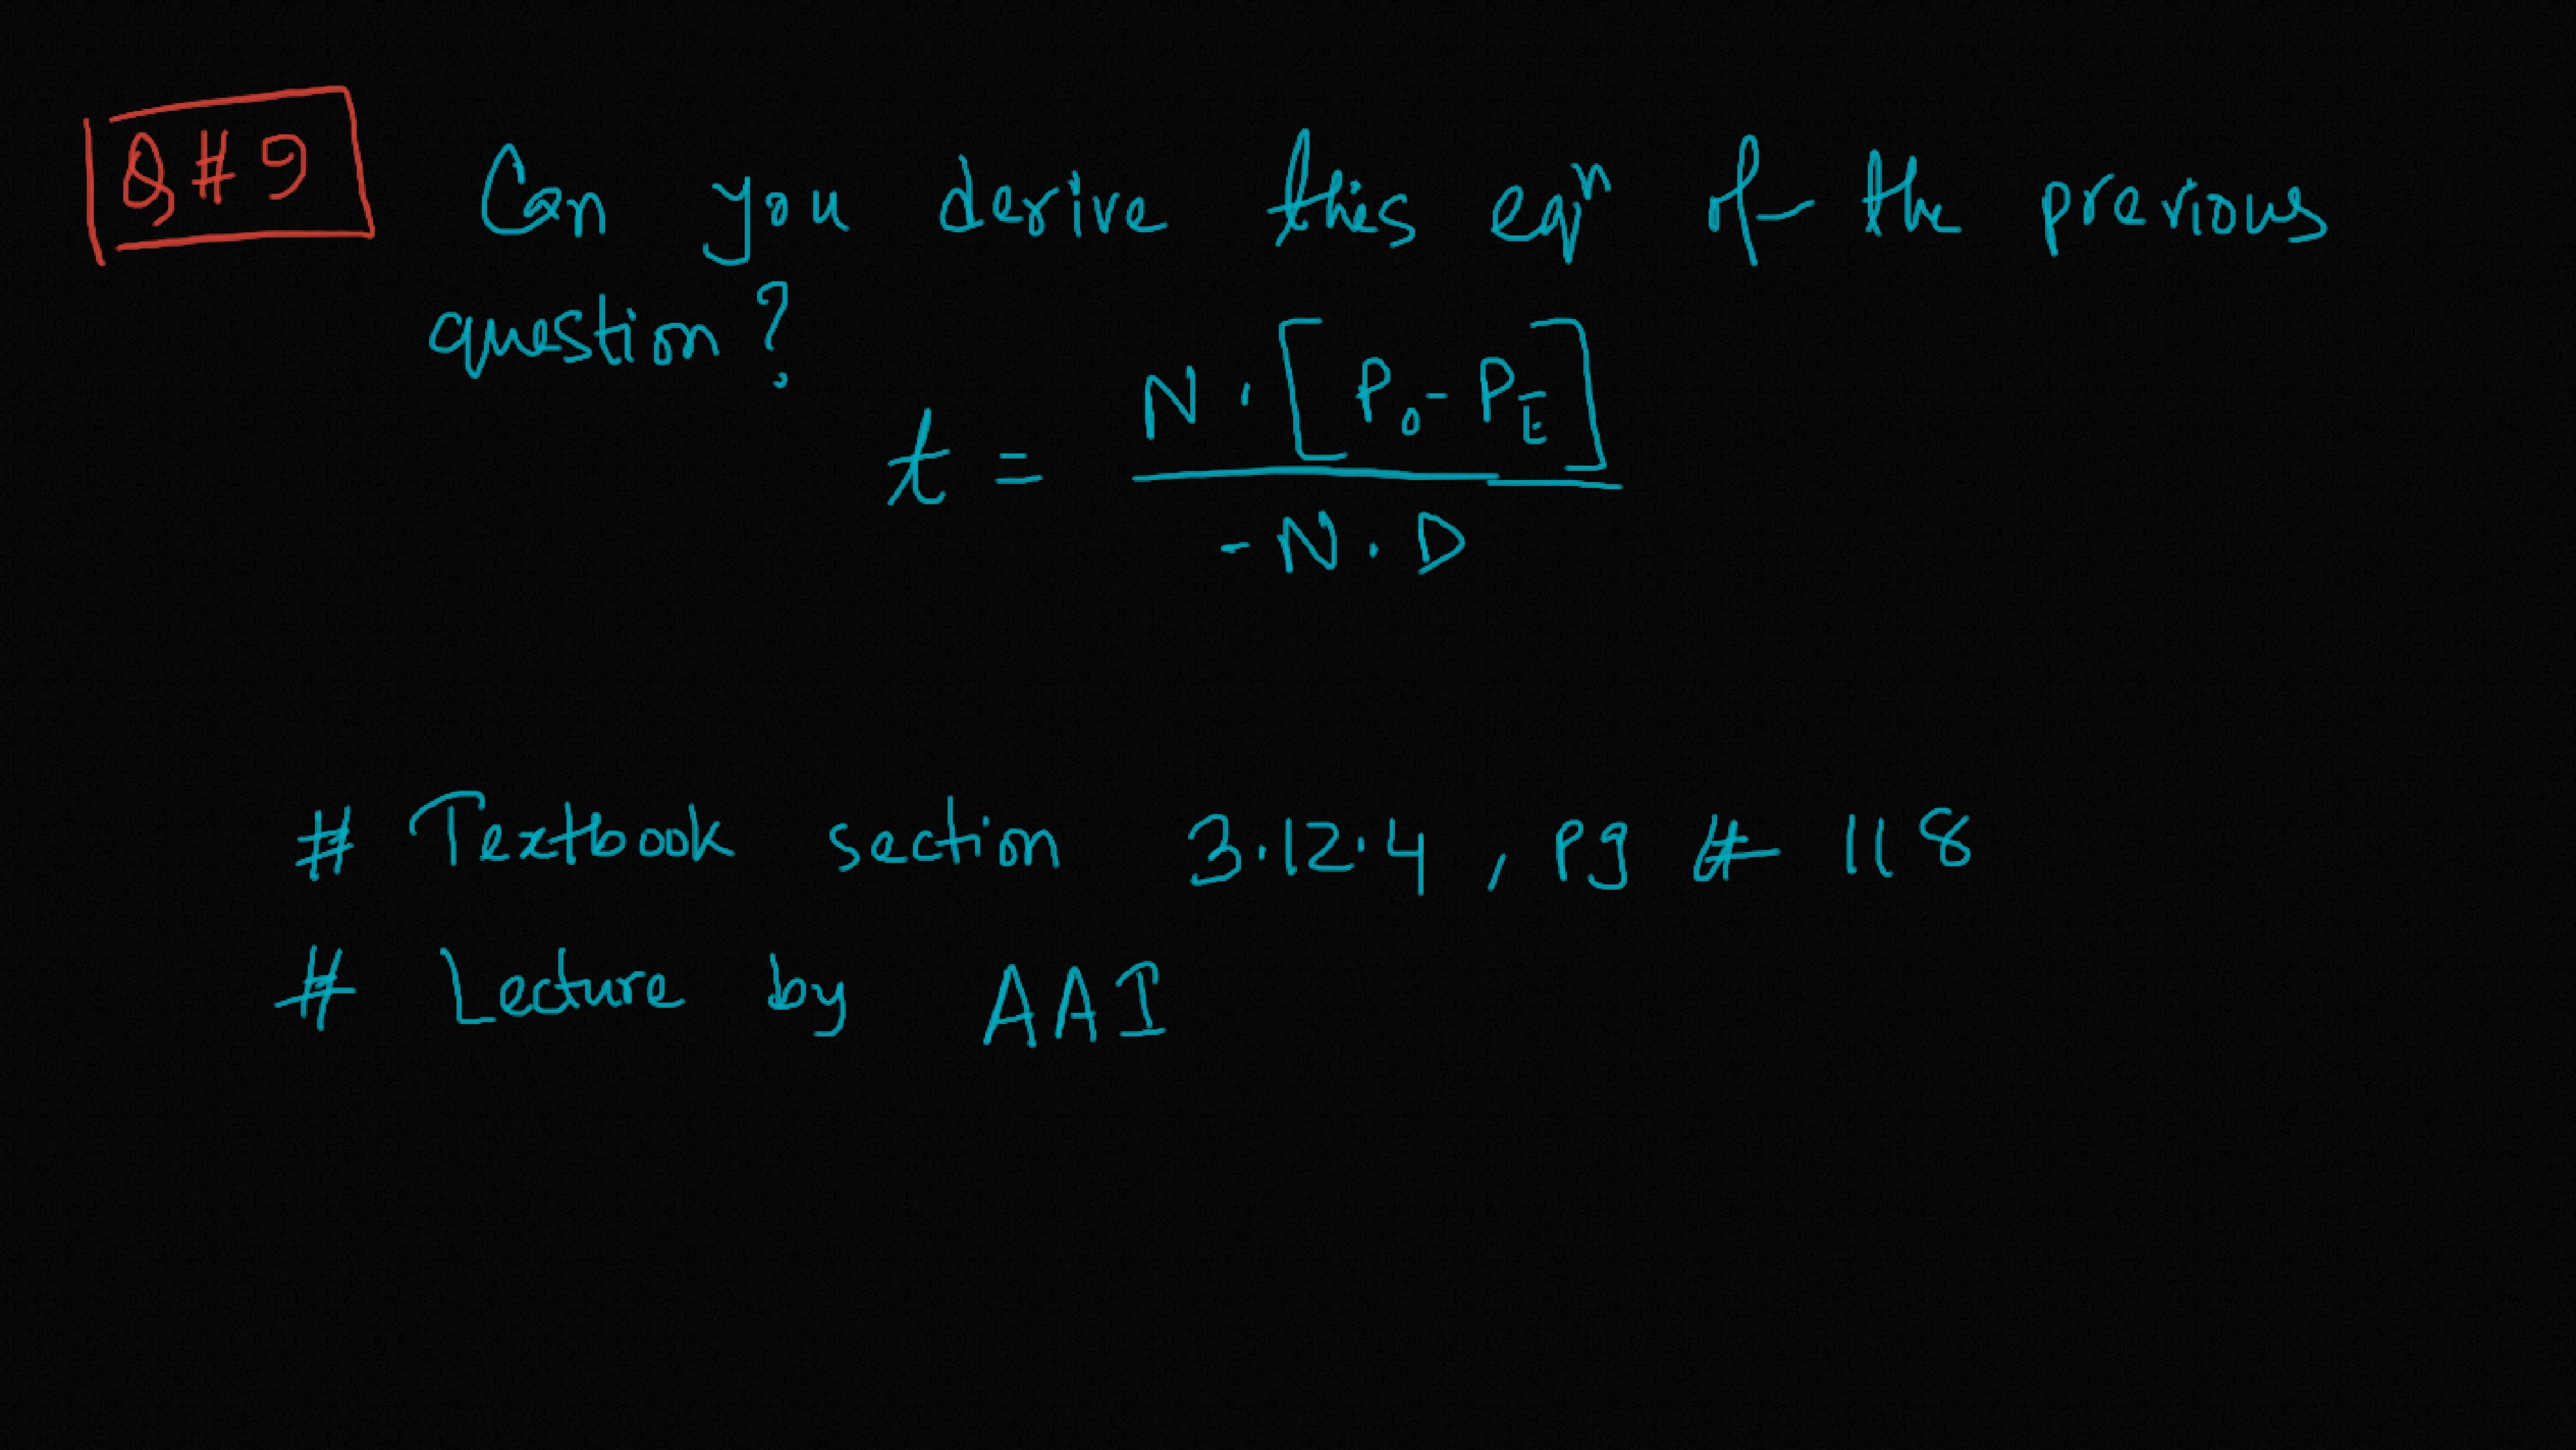 Q#9 Can you derive this eqⁿ of the previous
question?
t = N · [P₀ - P_E] / -N · D
# Textbook section 3.12.4, pg # 118
# Lecture by AAI